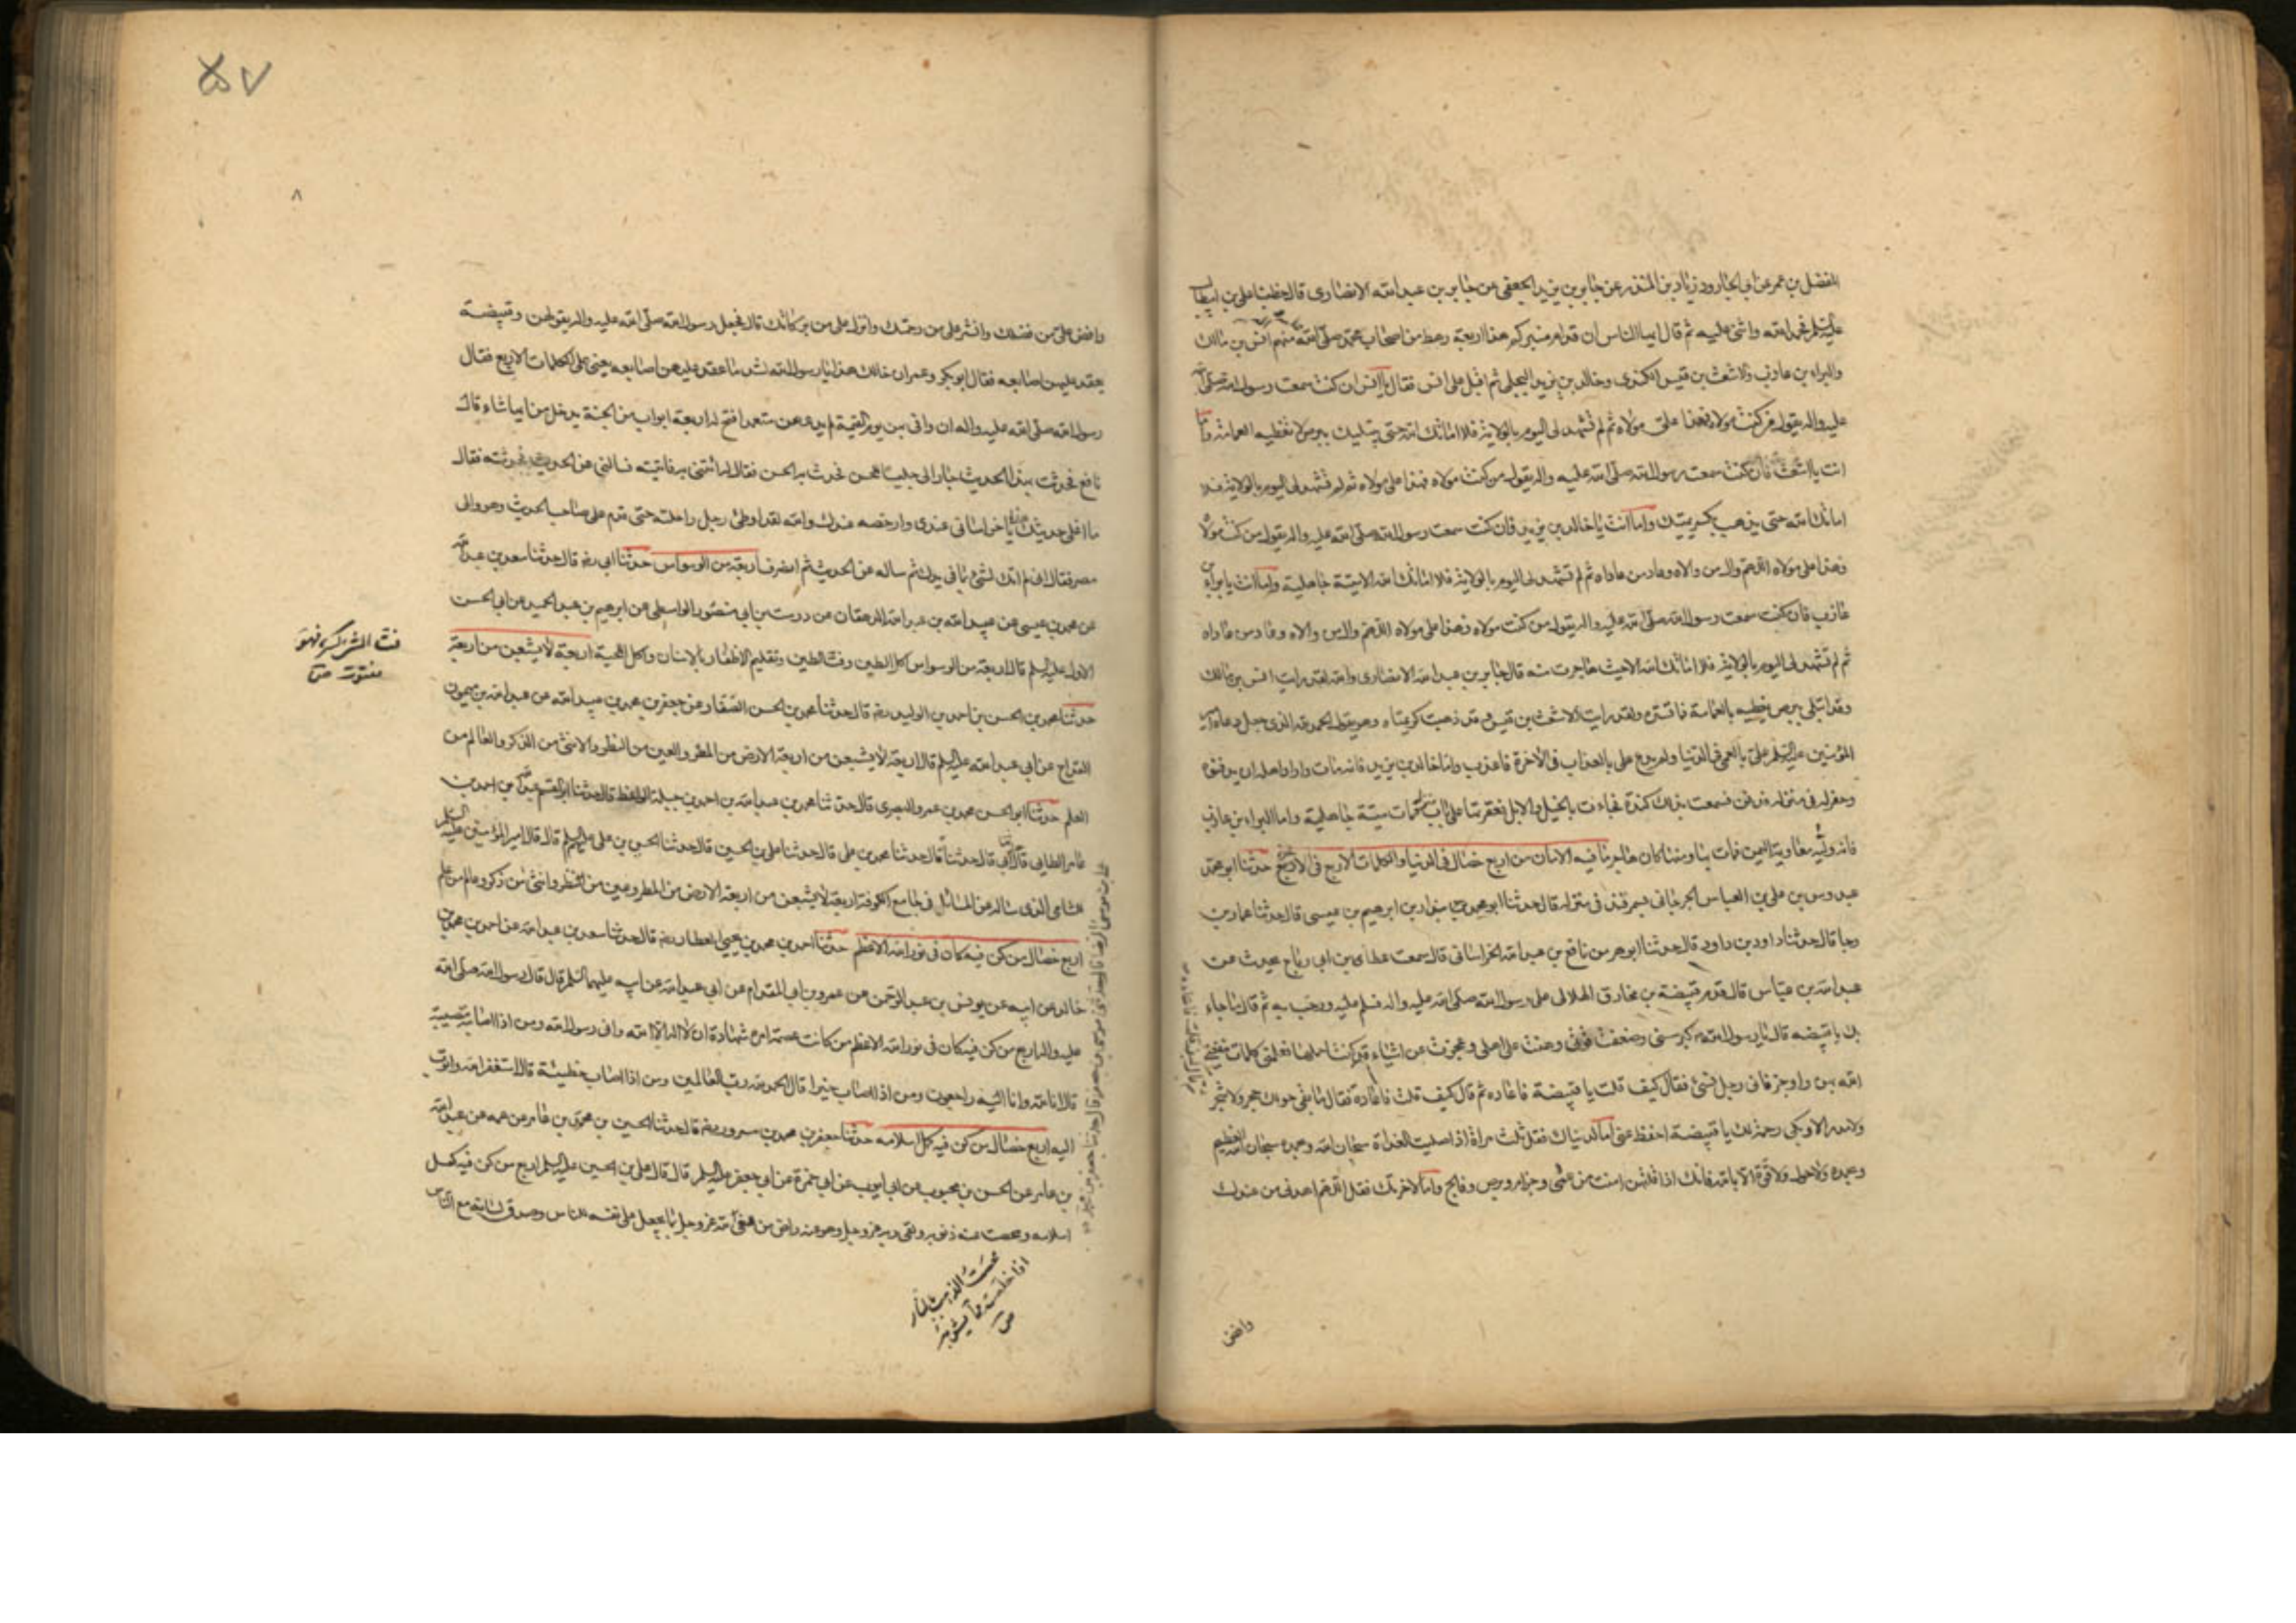 المفضل بن عمر عن ابي الجارود زياد بن المنذر عن جابر بن يزيد الجعفي عن جابر بن عبد الله الانصاري قال خطبنا علي بن ابيطالب
عليه السلم فحمد الله واثنى عليه ثم قال ايها الناس ان قدام منبركم هذا اربعة رهط من اصحاب محمد صلى الله منهم انس بن مالك
والبراء بن عازب والاشعث بن قيس الكندي وخالد بن يزيد البجلي ثم اقبل على انس فقال يا انس ان كنت سمعت رسول الله صلى الله
عليه واله يقول من كنت مولاه فهذا علي مولاه ثم لم تشهد لى اليوم بالولاية فلا اماتك الله حتى يبتليك ببرص لا تغطيه العمامة واما
انت يا اشعث فان كنت سمعت رسول الله صلى الله عليه واله يقول من كنت مولاه فهذا علي مولاه ثم لم تشهد لى اليوم بالولاية فلا
اماتك الله حتى يذهب بكريمتيك واما انت يا خالد بن يزيد فان كنت سمعت رسول الله صلى الله عليه واله يقول من كنت مولاه
فهذا علي مولاه اللهم وال من والاه وعاد من عاداه ثم لم تشهد لى اليوم بالولاية فلا اماتك الله الا ميتة جاهلية واما انت يا براء بن
عازب فان كنت سمعت رسول الله صلى الله عليه واله يقول من كنت مولاه فهذا علي مولاه اللهم وال من والاه وعاد من عاداه
ثم لم تشهد لى اليوم بالولاية فلا اماتك الله الا حيث هاجرت منه قال جابر بن عبد الله الانصاري والله لقد رايت انس بن مالك
وقد ابتلي ببرص يغطيه بالعمامة فما تستره ولقد رايت الاشعث بن قيس وقد ذهبت كريمتاه وهو يقول الحمد لله الذي جعل دعاء امير
المؤمنين عليه السلم علي بالعمى في الدنيا ولم يدع علي بالعذاب في الآخرة فاعذب واما خالد بن يزيد فانه مات واراد اهله ان يدفنوه
وحفر له في منزله فدفن فسمعت بذلك كندة فجاءت بالخيل والابل فعقرتها على باب منزله فمات ميتة جاهلية واما البراء بن عازب
فانه ولّيه معاوية اليمن فمات بها ومنها كان هاجر ما فيه الامان من اربع خصال في الدنيا والكلمات الاربع في الآخرة حدثنا ابو محمد
عبدوس بن علي بن العباس الجرجاني بسمرقند في منزله قال حدثنا ابو محمد بن بنداد بن ابرهيم بن عيسى قال حدثنا عمار بن
رجا قال حدثنا داود بن داود قال حدثنا ابو هرمز نافع بن عبد الله الخراساني قال سمعت عطاء بن ابي رباح يحدث عن
عبد الله بن عباس قال قدم قبيضة بن مخارق الهلالي على رسول الله صلى الله عليه واله فسلم عليه ورحب به ثم قال ما جاء
بك يا قبيضه قال يا رسول الله كبر سني وضعفت قوتي وهنت على اهلي وعجزت عن اشياء قد كنت اعملها فعلمني كلمات ينفعني
الله بهن واوجز فاني رجل نسي فقال كيف قلت يا قبيضة فاعاده ثم قال كيف قلت فاعاده فقال ما بقي حولك حجر ولا شجر
ولا مدر الا وبكى رحمة لك يا قبيضة احفظ عني اما لدنياك فقل ثلث مراة اذا صليت الغداة سبحان الله وبحمده سبحان الله العظيم
وبحمده ولا حول ولا قوة الا بالله فانك اذا قلتهن امنت من عمى وجذام وبرص وفالج واما لاخرتك فقل اللهم اهدني من عندك
وافض
٥٧
٨
وافض علي من فضلك وانشر علي من رحمتك وانزل علي من بركاتك قال فجعل رسول الله صلى الله عليه واله يقولهن وقبيضة
يعقد عليهن اصابعه فقال ابو بكر وعمر ان خالك هذا يا رسول الله لشد ما عقد عليهن اصابعه يعني على الكلمات الاربع فقال
رسول الله صلى الله عليه واله ان وافى بهن يوم القيمة لم يدعهن متعمدا فتح له اربعة ابواب من الجنة يدخل من ايها شاء قال
نافع فحدثت بهذا الحديث جارا لي جليسا لمحسن فحدث به الحسن فقال له ائتني به فاتيته فسالني عن الحديث فحدثته فقال
ما اغلى حديثك يا خراساني عندي وارخصه عندك والله لقد اوطئ رجل راحلته حتى قدم على صاحب الحديث وهو والي
مصر فقال اني لم اتك لشئ مما في يدك ثم ساله عن الحديث ثم انصرف اربعة من الوسواس حدثنا ابي رضه قال حدثنا سعد بن عبد الله
عن محمد بن عيسى عن عبيد الله بن عبد الله الدهقان عن درست بن ابي منصور الواسطي عن ابرهيم بن عبد الحميد عن ابي الحسن
الاول عليه السلم قال اربعة من الوسواس اكل الطين وفت الطين وتقليم الاظفار بالاسنان واكل اللحية اربعة لا يشبعن من اربعة
حدثنا محمد بن الحسن بن احمد بن الوليد رضه قال حدثنا محمد بن الحسن الصفار عن جعفر بن محمد بن عبيد الله عن عبد الله بن ميمون
القداح عن ابي عبد الله عليه السلم قال اربعة لا يشبعن من اربعة الارض من المطر والعين من النظر والانثى من الذكر والعالم من
العلم حدثنا ابو الحسن محمد بن عمرو البصري قال حدثنا محمد بن عبد الله بن احمد بن جبلة الواعظ قال حدثنا ابو القسم عبد الله بن احمد بن
عامر الطايي قال حدثنا ابي قال حدثنا محمد بن علي قال حدثنا علي بن الحسين قال حدثنا الحسين بن علي عليهم السلم قال قال امير المؤمنين عليه السلم
للشامي الذي ساله عن المسائل في جامع الكوفة اربعة لا يشبعن من اربعة الارض من المطر وعين من النظر وانثى من ذكر وعالم من علم
اربع خصال من كن فيه كان في نور الله الاعظم حدثنا احمد بن محمد بن يحيى العطار رضه قال حدثنا سعد بن عبد الله عن احمد بن محمد بن
خالد عن ابيه عن يونس بن عبد الرحمن عن عمرو بن ابي المقدام عن ابي عبد الله عن ابيه عليهما السلم قال قال رسول الله صلى الله
عليه واله اربع من كن فيه كان في نور الله الاعظم من كانت عصمة امره شهادة ان لا اله الا الله واني رسول الله ومن اذا اصابته مصيبة
قال انا لله وانا اليه راجعون ومن اذا اصاب خيرا قال الحمد لله رب العالمين ومن اذا اصاب خطيئة قال استغفر الله واتوب
اليه اربع خصال من كن فيه كمل اسلامه حدثنا جعفر بن محمد بن مسرور رضه قال حدثنا الحسين بن محمد بن عامر عن عمه عن عبد الله
بن عامر عن الحسن بن محبوب عن ابي ايوب عن ابي حمزة عن ابي جعفر عليه السلم قال قال علي بن الحسين عليه السلم اربع من كن فيه كمل
اسلامه ومحصت عنه ذنوبه ولقي ربه عز وجل وهو عنه راض من وفى لله عز وجل بما يجعل على نفسه للناس وصدق لسانه مع الناس
فت الشئ كسره فهو
مفتوت ص
محصت الذهب بالنار
اذا خلصته مما يشوبه
ص